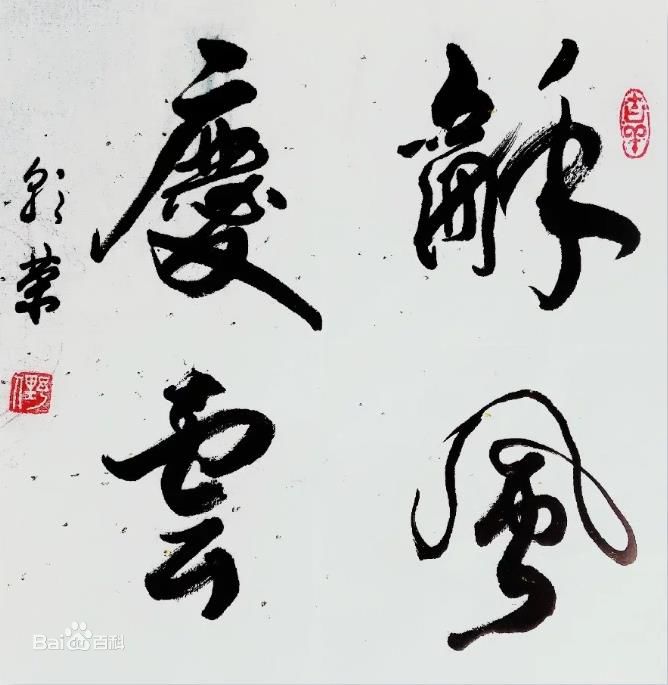 龢風
慶雲
Bai百科